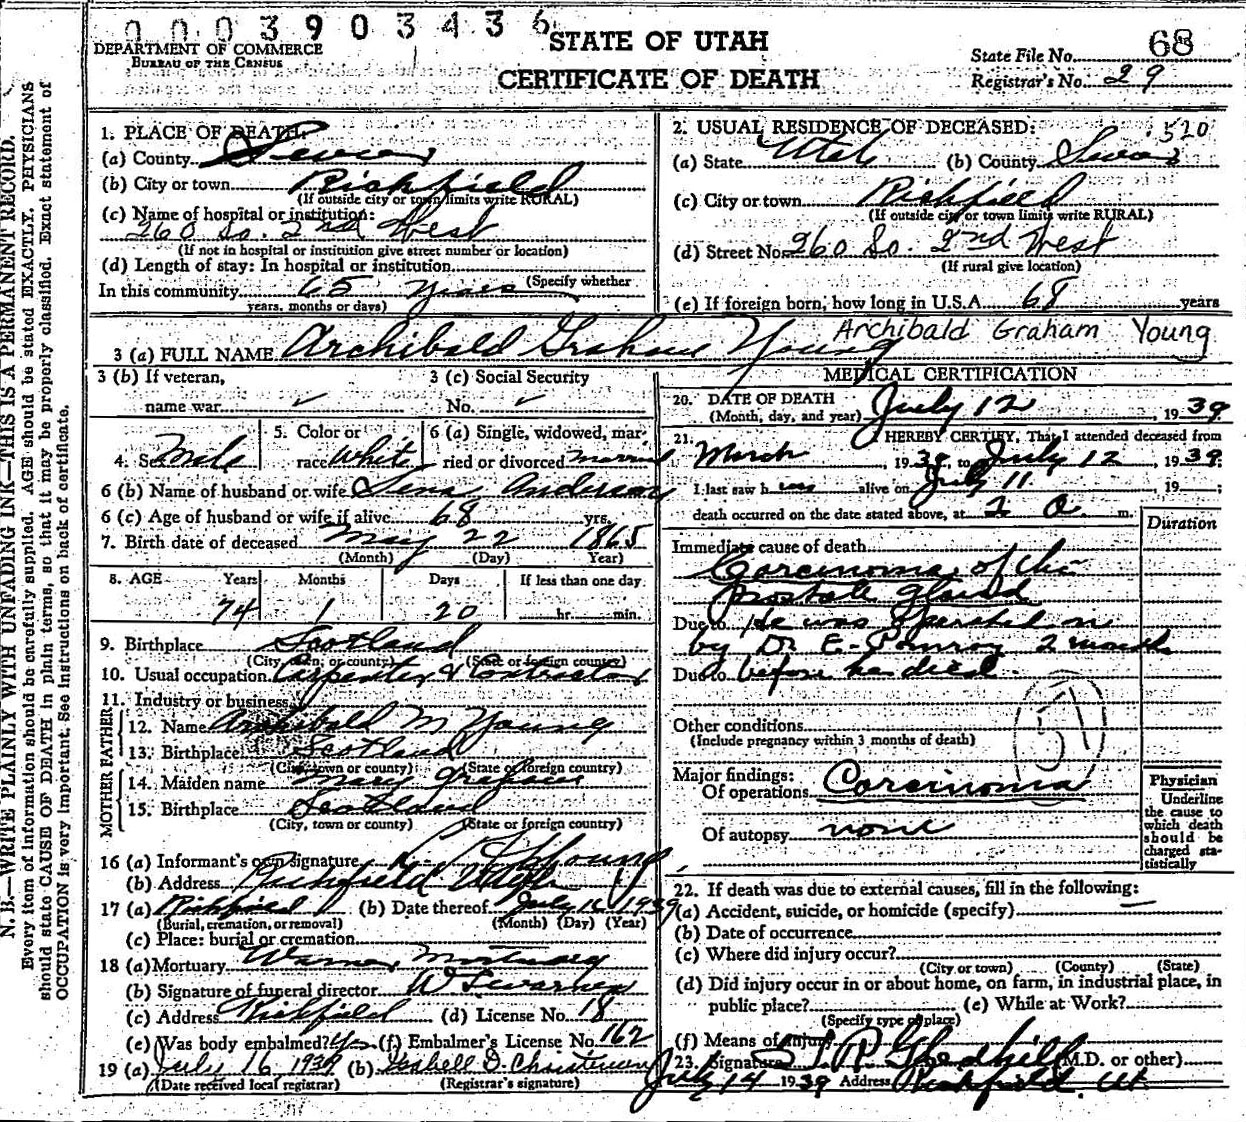 0003903436
DEPARTMENT OF COMMERCE
BUREAU OF THE CENSUS
STATE OF UTAH
CERTIFICATE OF DEATH
State File No. 68
Registrar's No. 29
N. B.—WRITE PLAINLY WITH UNFADING INK—THIS IS A PERMANENT RECORD.
Every item of information should be carefully supplied. AGE should be stated EXACTLY. PHYSICIANS
should state CAUSE OF DEATH in plain terms, so that it may be properly classified. Exact statement of
OCCUPATION is very important. See instructions on back of certificate.
1. PLACE OF DEATH:
(a) County Sevier
(b) City or town Richfield
(If outside city or town limits write RURAL)
(c) Name of hospital or institution:
260 So. 2nd West
(If not in hospital or institution give street number or location)
(d) Length of stay: In hospital or institution
(Specify whether
In this community 65 years
years, months or days)
2. USUAL RESIDENCE OF DECEASED: 520
(a) State Utah (b) County Sevier
(c) City or town Richfield
(If outside city or town limits write RURAL)
(d) Street No. 260 So. 2nd West
(If rural give location)
(e) If foreign born, how long in U.S.A. 68 years
3 (a) FULL NAME Archibald Graham Young Archibald Graham Young
3 (b) If veteran,
name war
3 (c) Social Security
No.
4. Sex Male
5. Color or
race White
6 (a) Single, widowed, mar-
ried or divorced married
6 (b) Name of husband or wife Sena Anderson
6 (c) Age of husband or wife if alive 68 yrs.
7. Birth date of deceased May 22 1865
(Month) (Day) Year)
8. AGE Years Months Days If less than one day
74 1 20 hr. min.
9. Birthplace Scotland
(City, town, or county) (State or foreign country)
10. Usual occupation Carpenter & Contractor
11. Industry or business
FATHER
12. Name Archibald M Young
13. Birthplace Scotland
(City, town or county) (State or foreign country)
MOTHER
14. Maiden name Mary Graham
15. Birthplace Scotland
(City, town or county) (State or foreign country)
16 (a) Informant's own signature Young
(b) Address Richfield Utah
17 (a) Richfield (b) Date thereof July 16 1939
(Burial, cremation, or removal) (Month) (Day) (Year)
(c) Place: burial or cremation
18 (a) Mortuary Warner Mortuary
(b) Signature of funeral director Warner
(c) Address Richfield (d) License No. 18
(e) Was body embalmed? Yes (f) Embalmer's License No. 162
19 (a) July 16, 1939 (b) D. Christensen
(Date received local registrar) (Registrar's signature)
MEDICAL CERTIFICATION
20. DATE OF DEATH
(Month, day, and year) July 12, 1939
21. I HEREBY CERTIFY, That I attended deceased from
March, 1939, to July 12, 1939.
I last saw him alive on July 11, 19 ;
death occurred on the date stated above, at 2 a m.
Duration
Immediate cause of death
Carcinoma of the
prostate gland
Due to He was operated on
by Dr. E. 2 months
Due to before he died.
51
Other conditions
(Include pregnancy within 3 months of death)
Major findings:
Of operations Carcinoma
Of autopsy none
Physician
Underline
the cause to
which death
should be
charged sta-
tistically
22. If death was due to external causes, fill in the following:
(a) Accident, suicide, or homicide (specify)
(b) Date of occurrence
(c) Where did injury occur?
(City or town) (County) (State)
(d) Did injury occur in or about home, on farm, in industrial place, in
public place? (e) While at Work?
(Specify type of place)
(f) Means of injury
23. Signature Gledhill (M.D. or other)
July 14 1939 Address Richfield. Ut.